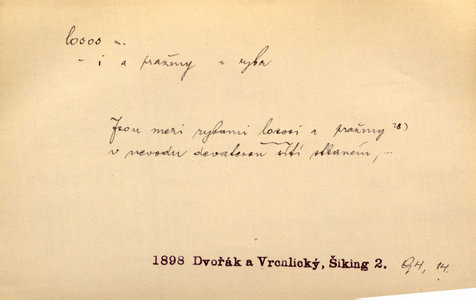 losos –.
– i a pražmy = ryba
Jsou mezi rybami lososi a pražmy 28)
v nevodu devaterou sítí utkaném, ...
1898 Dvořák a Vrchlický, Šiking 2. 94, 14.